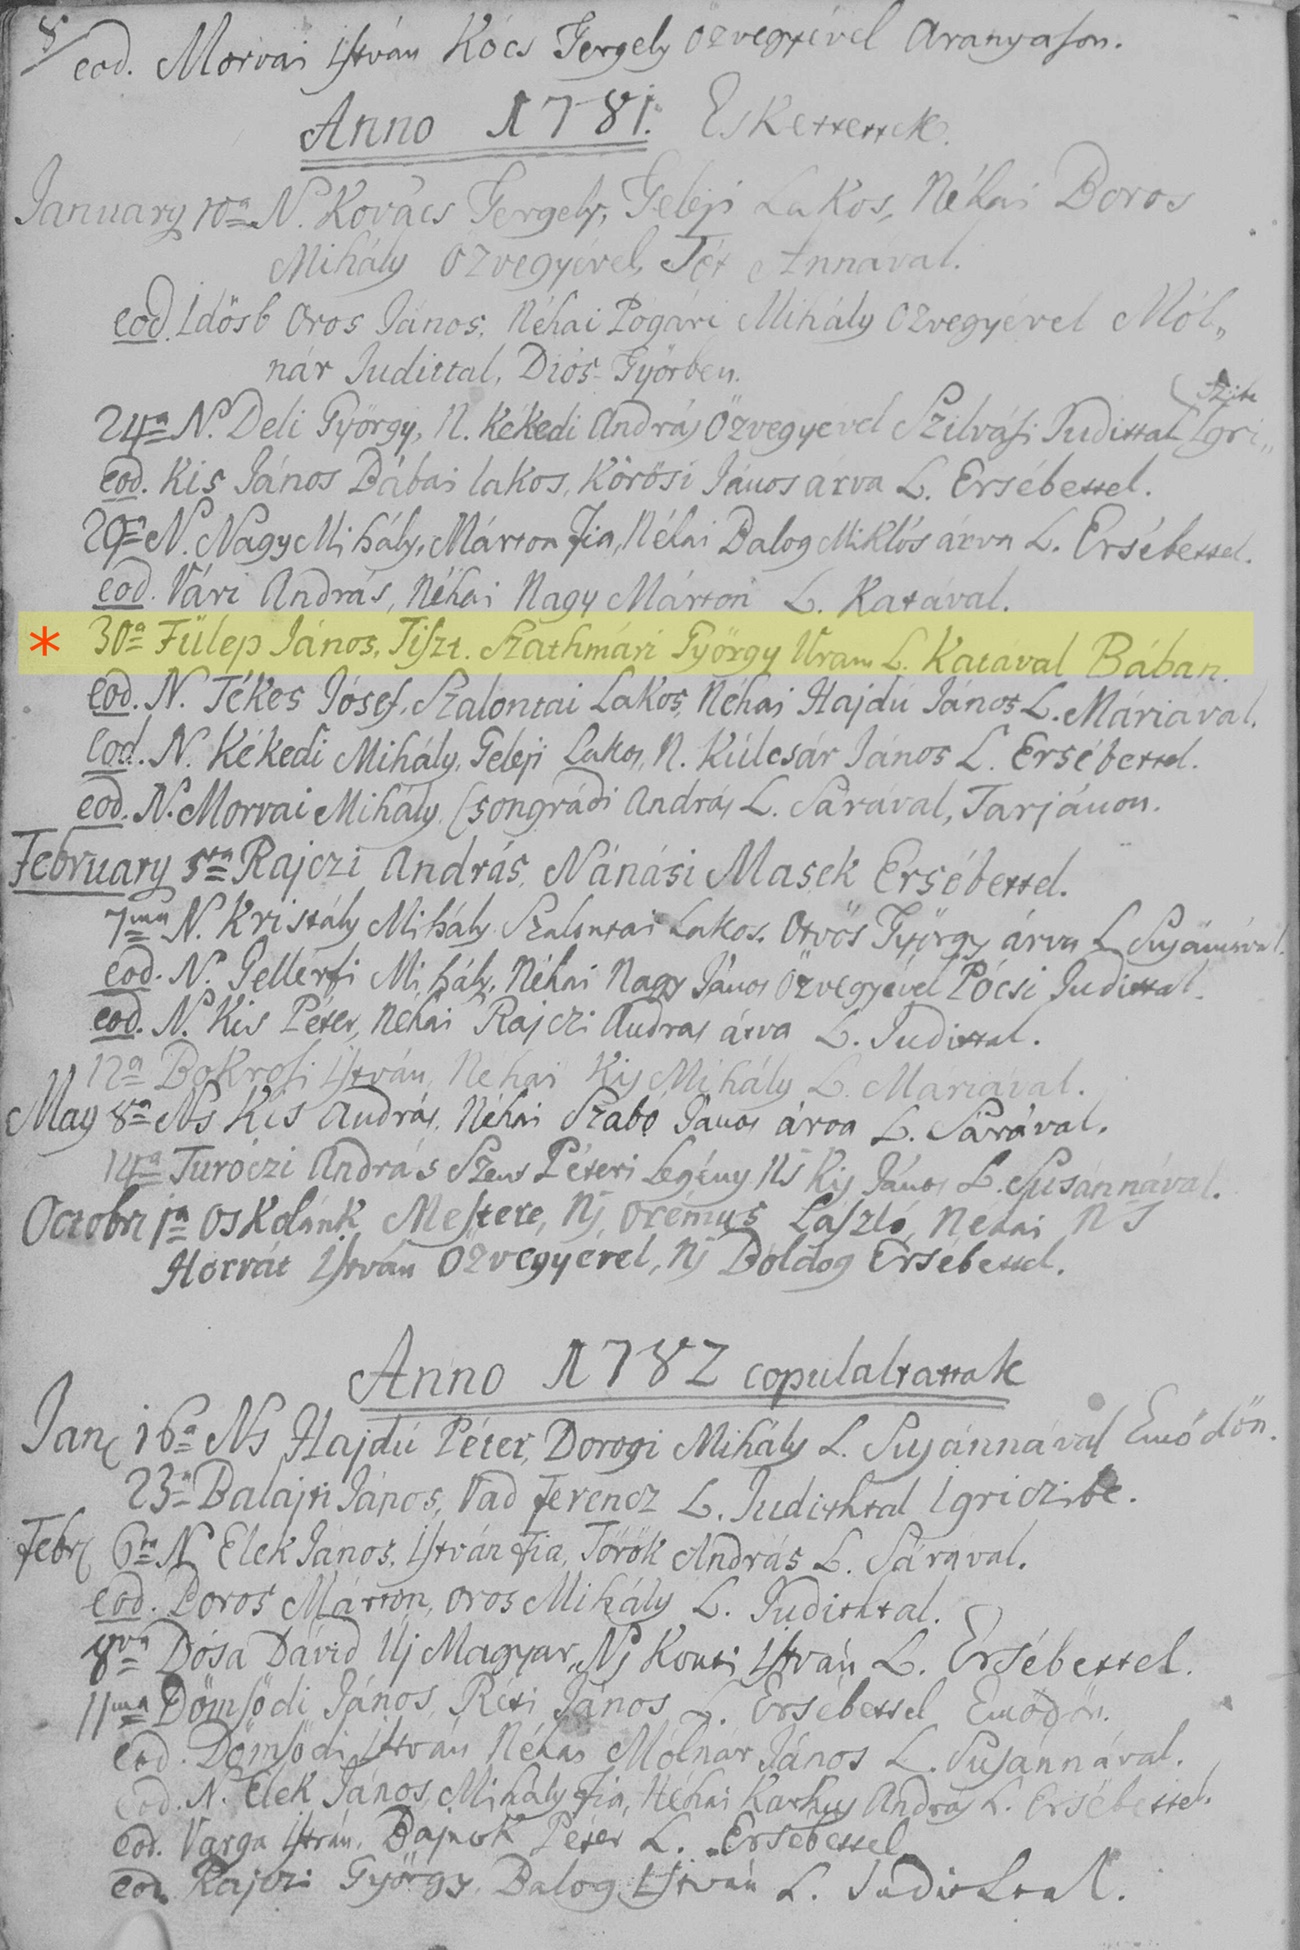 8/
eod. Morvai István Kócs Gergely özvegyével Aranyason.
Anno 1781. Eskettettek.
January 10a N. Kovács Gergely, Geleji Lakos, Néhai Boros
Mihály Özvegyével, Tót Annával.
eod. Idösb Oros János, Néhai Pogári Mihály Özvegyével Mól„
nár Judittal, Diós-Györben.
24a N. Deli György, N. Kékedi András Özvegyével Szilvási Judittal Igri„
eod. Kis János Bábai lakos, Körösi János árva L. Ersébettel.
29a N. Nagy Mihály, Márton fia, Néhai Balog Miklós árva L. Ersébettel.
eod. Vári András, Néhai Nagy Márton L. Katával.
* 30a Fülep János, Tiszt. Szathmári György Uram L. Katával Bában.
eod. N. Tékes Jósef, Szalontai Lakos, Néhai Hajdú János L. Máriával.
eod. N. Kékedi Mihály, Geleji Lakos, N. Kúlcsár János L. Ersébettel.
eod. N. Morvai Mihály, Csongrádi András L. Sárával, Tarjánon.
February 5ta Rajczi András, Nánási Masek Ersébettel.
7ma N. Kristály Mihály Szalontai Lakos. Otvös György árva L. Susánnával.
eod. N. Gellérfi Mihály, Néhai Nagy János Özvegyével Pócsi Judittal.
eod. N. Kis Péter, Néhai Rajczi András árva L. Judittal.
12a Bokrosi István, Néhai Kis Mihály L. Máriával.
May 8a Ns Kis András, Néhai Szabó János árva L. Sárával.
14a Turóczi András Szent Péteri Legény Ns Kis János L. Susánnával.
Octobr 1a Oskolánk Mestere, Ns Orémus László, Néhai NS
Horvát István Özvegyével, Ns Boldog Ersébettel.
Anno 1782 copuláltattak
Jan 16a Ns Hajdú Péter, Dorogi Mihály L. Susánnával Emödön.
23a Balajti János, Vad Ferencz L. Judithtal Igriczibe.
Febr 6ta N Elek János, István fia, Török András L. Sárával.
eod. Boros Márton, Oros Mihály L. Judithtal.
8va Dósa Dávid Uj Magyar, Ns Konti István L. Ersébettel.
11ma Dömsödi János, Réti János L. Ersébettel Emödön.
eod. Dömsödi István Néhai Mólnár János L. Susánnával.
eod. N. Elek János, Mihály fia, Néhai András L. Ersébettel.
eod. Varga István, Péter L. Ersébettel
eod. Rajczi György, Balog István L. Judithtal.